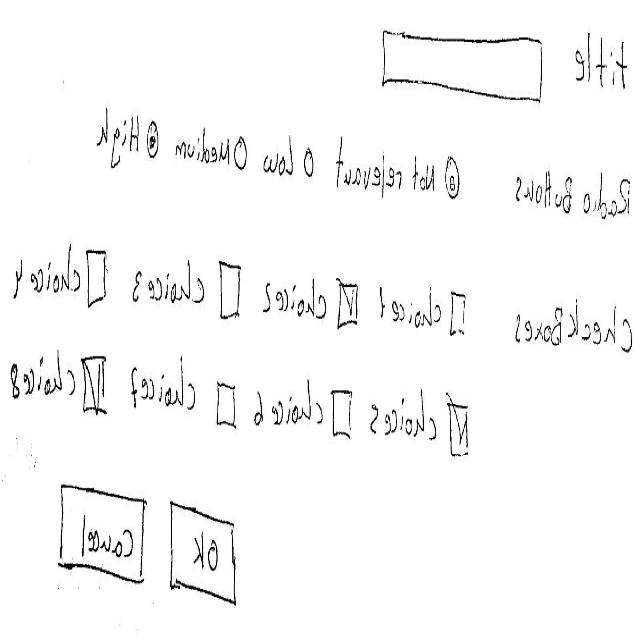 title
Radio Buttons Not relevant Low Medium High
CheckBoxes choice 1 choice 2 choice 3 choice 4
choice 5 choice 6 choice 7 choice 8
OK Cancel